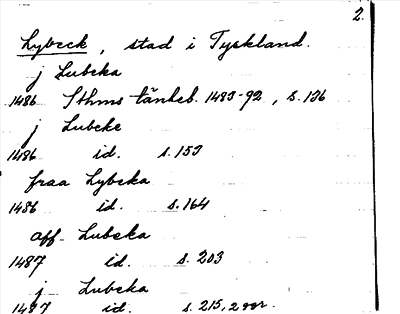 2.
Lybeck, stad i Tyskland.
j Lubeka
1486 Sthms tänkeb. 1483-92, s. 136
j Lubeke
1486 id. s. 153
fraa Lybeka
1486 id. s. 164
aff Lubeka
1487 id. s. 203
j Lubeka
1487 id. s. 215, 2 ggr.